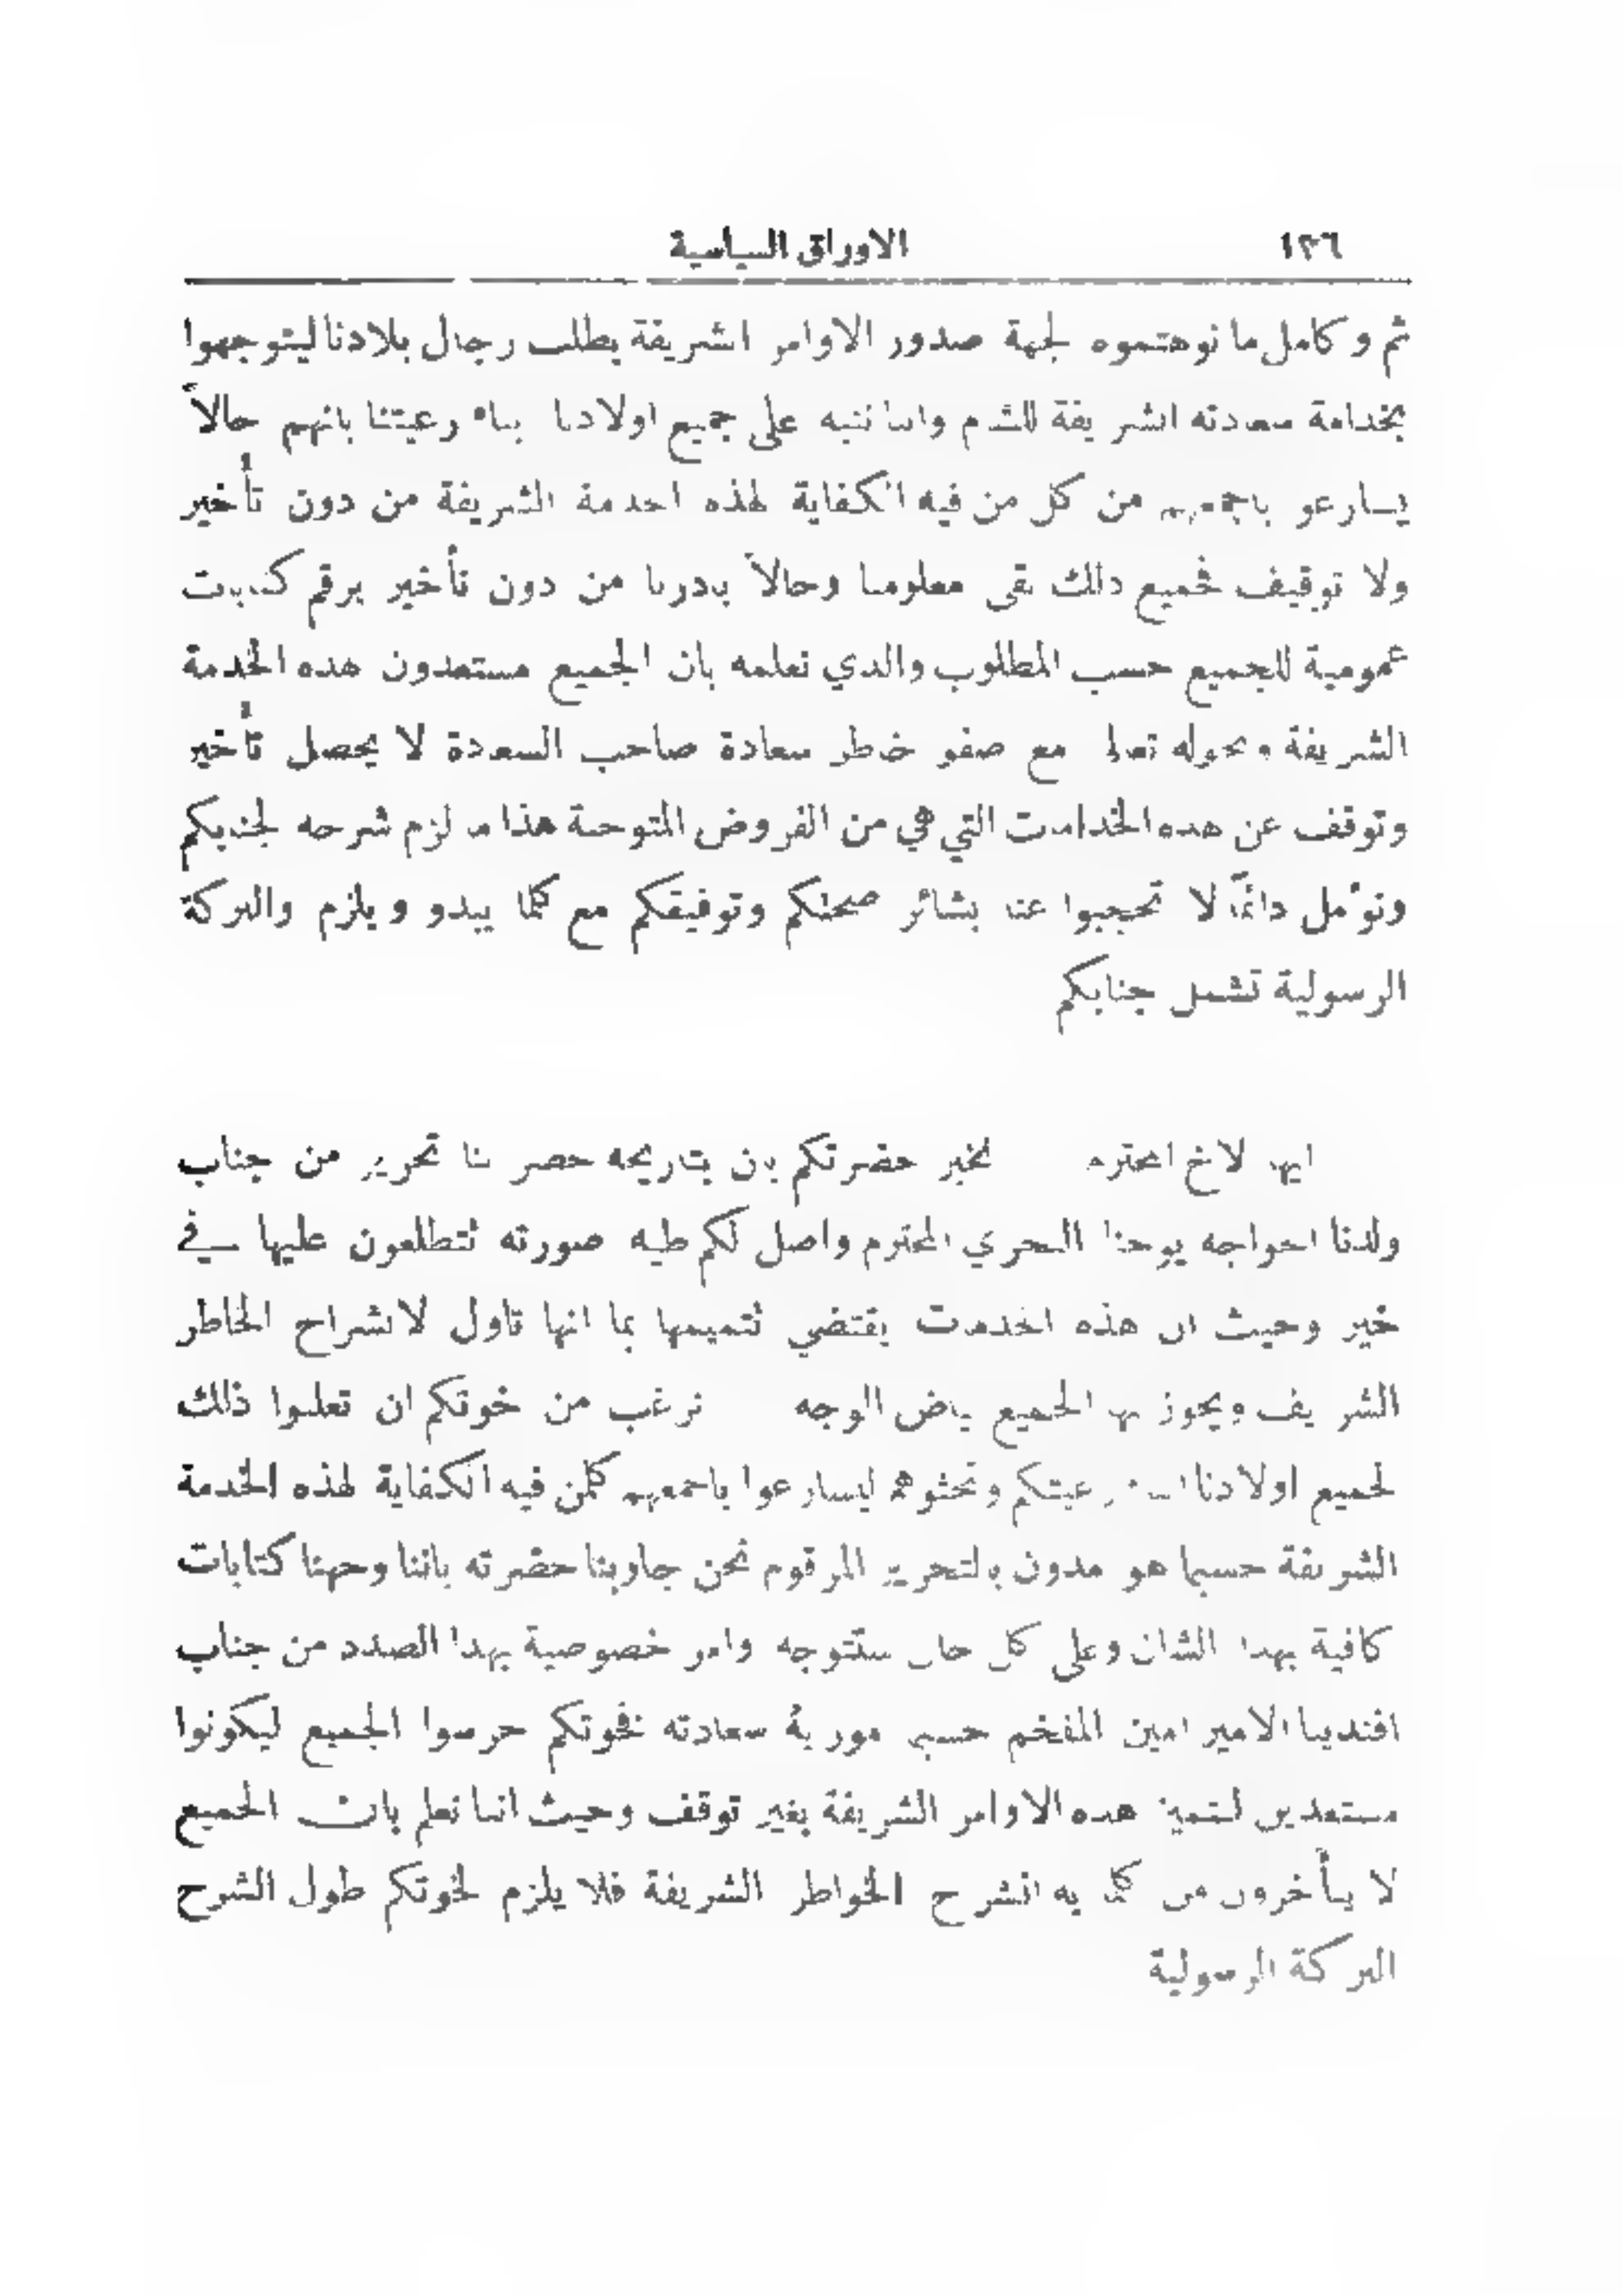 ١٣٦ الاوراق السياسية
ثم وكامل ما نوهتموه لجهة صدور الاوامر الشريفة بطلب رجال بلادنا ليتوجهوا
بخدامة سعادته الشريفة للشام واننا ننبه على جميع اولادنا ابناء رعيتنا بانهم حالاً
يسارعو باجمعهم من كل من فيه الكفاية لهذه الخدمة الشريفة من دون تأخير
ولا توقيف فجميع ذلك بقى معلومنا وحالاً بادرنا من دون تأخير برقم كتابات
عمومية للجميع حسب المطلوب والذي نعلمه بان الجميع مستعدون هذه الخدمة
الشريفة وبحوله تعالى مع صفو خاطر سعادة صاحب السعادة لا يحصل تأخير
وتوقف عن هذه الخدامات التي هي من الفروض المتوجبة هذا ما لزم شرحه لجنابكم
ونؤمل دائماً لا تحجبوا عنا بشائر صحتكم وتوفيقكم مع كلما يبدو ويلزم والبركة
الرسولية تشمل جنابكم
ايها الاخ المحترم نخبر حضرتكم بان بتاريخه حضر لنا تحرير من جناب
ولدنا الخواجه يوحنا البحري المحترم واصل لكم طيه صورته تتطلعون عليها في
خير وحيث ان هذه الخدمات يقتضي تتميمها بما انها تاول لانشراح الخاطر
الشريف ويحوز بها الجميع بياض الوجه نرغب من خوتكم ان تعلموا ذلك
لجميع اولادنا ابناء رعيتكم وتحثوهم ليسارعوا باجمعهم كلمن فيه الكفاية لهذه الخدمة
الشريفة حسبما هو مدون بالتحرير المرقوم نحن جاوبنا حضرته باننا وجهنا كتابات
كافية بهذا الشان وعلى كل حال ستتوجه وامر خصوصية بهذا الصدد من جناب
افندينا الامير امين المفخم حسب مورية سعادته فخوتكم حرسوا الجميع ليكونوا
مستعدين لتتميم هذه الاوامر الشريفة بغير توقف وحيث اننا نعلم بان الجميع
لا يتأخرون من كلما به انشرح الخواطر الشريفة فلا يلزم لخوتكم طول الشرح
البركة الرسولية